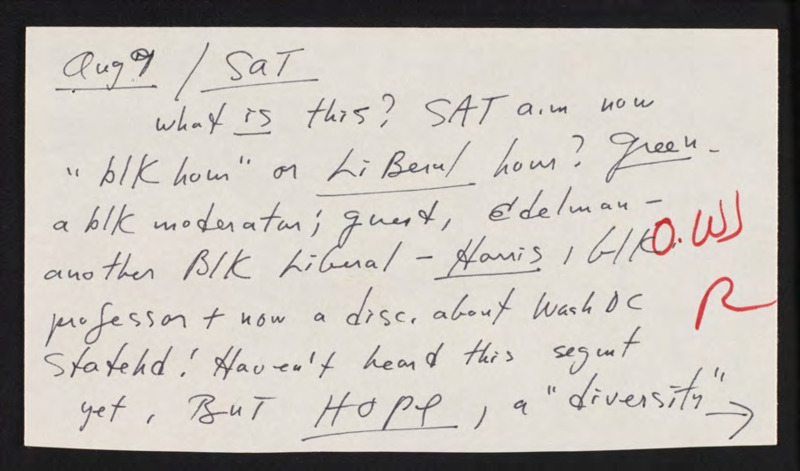 Aug 9 / SAT
what is this? SAT a.m now
"blk hour" or LiBeral hour? Green -
a blk moderator; guest, Edelman -
another Blk Liberal - Harris, blk
O.W
professor + now a disc. about Wash DC
R
Statehd! Haven't heard this segmt
yet, BuT HOPE, a "diversity" →